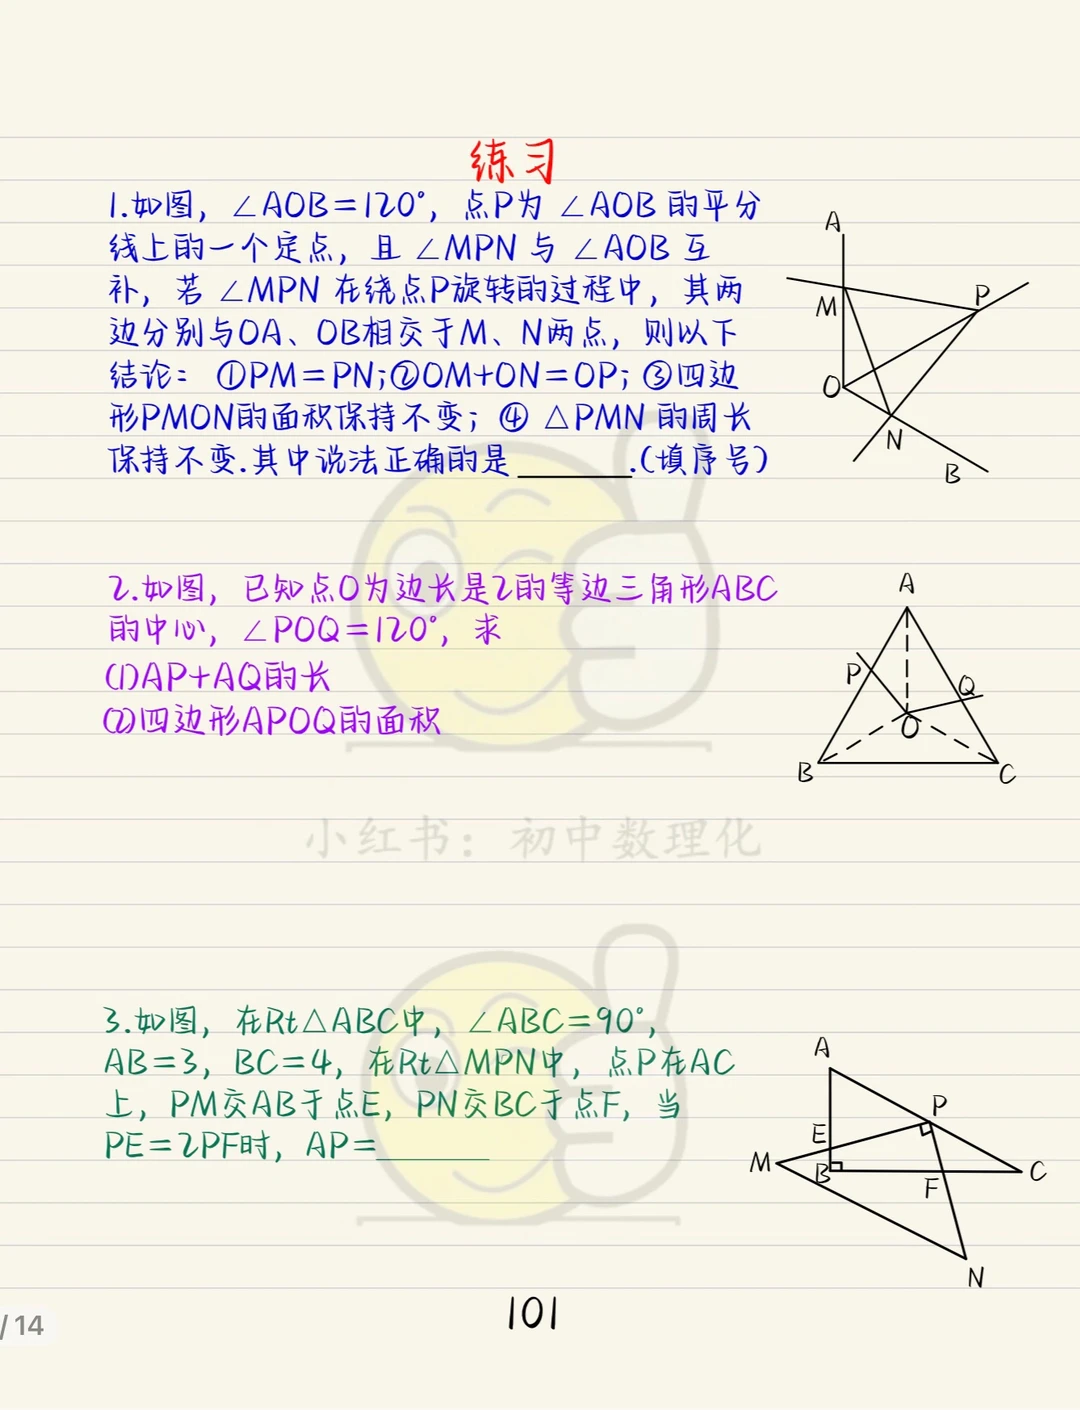 练习
1.如图，∠AOB=120°，点P为 ∠AOB 的平分
线上的一个定点，且 ∠MPN 与 ∠AOB 互
补，若 ∠MPN 在绕点P旋转的过程中，其两
边分别与OA、OB相交于M、N两点，则以下
结论： ①PM=PN;②OM+ON=OP; ③四边
形PMON的面积保持不变；④ △PMN 的周长
保持不变.其中说法正确的是______.(填序号)
A
M
P
O
N
B
2.如图，已知点O为边长是2的等边三角形ABC
的中心，∠POQ=120°，求
(1)AP+AQ的长
(2)四边形APOQ的面积
A
P
Q
O
B
C
小红书：初中数理化
3.如图，在Rt△ABC中，∠ABC=90°，
AB=3，BC=4，在Rt△MPN中，点P在AC
上，PM交AB于点E，PN交BC于点F，当
PE=2PF时，AP=______
A
P
E
M
B
F
C
N
101
/ 14